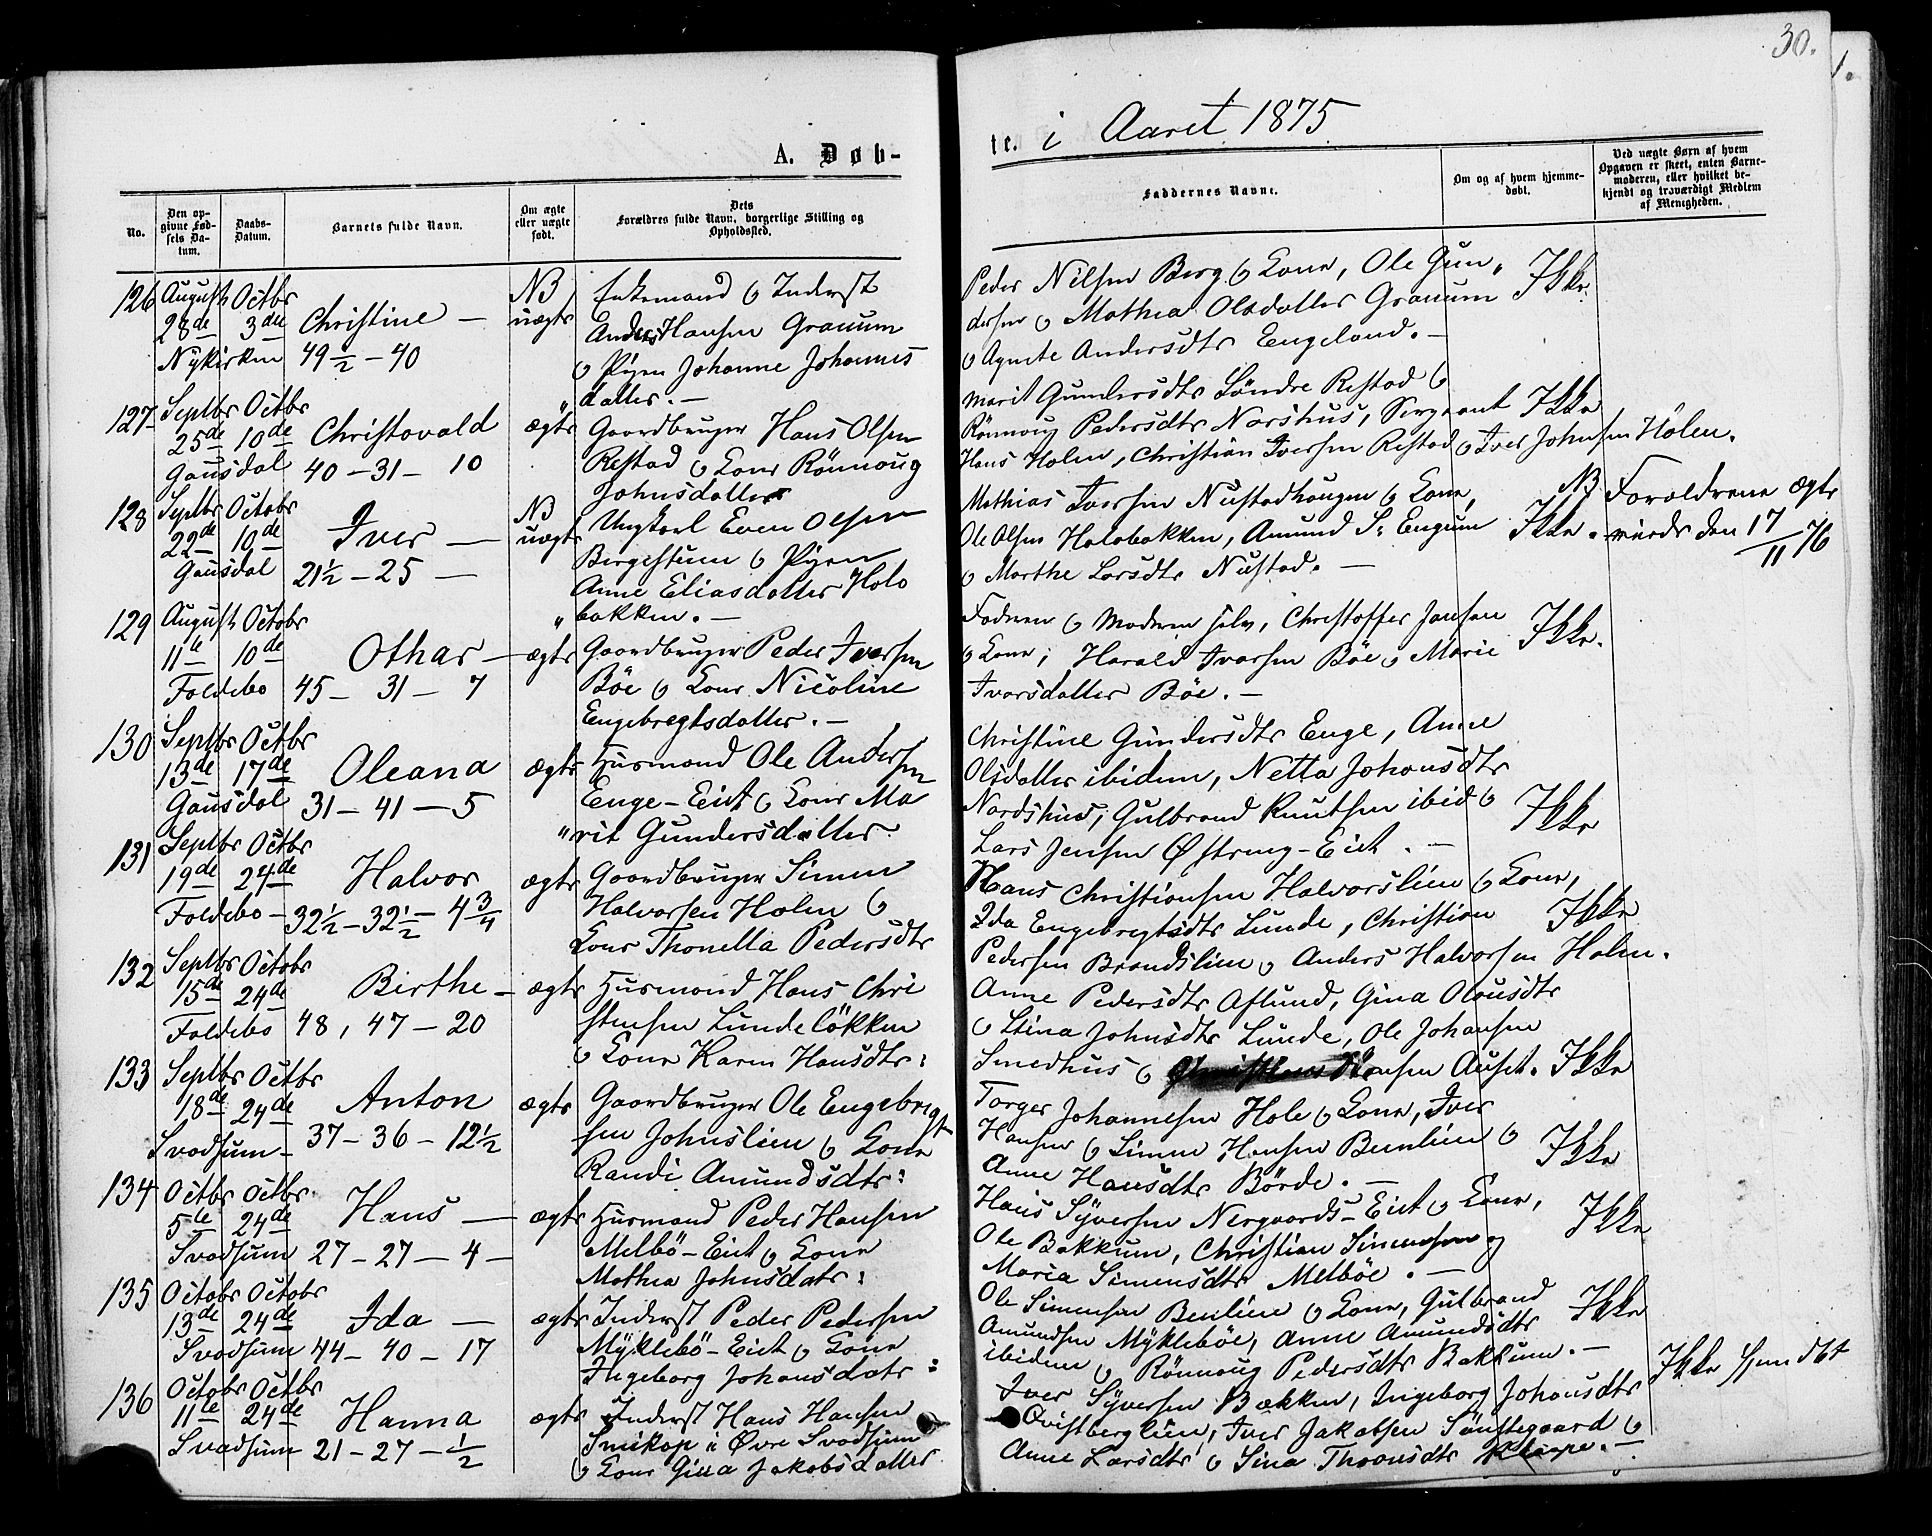 30.
1.
A. Døb-
te. i Aaret 1875
No.
Den op-
givne Fød-
sels Da-
tum.
Daabs-
Datum.
Barnets fulde Navn.
Om ægte
eller uægte
født.
Dets
Forældres fulde Navn, borgerlige Stilling og
Opholdssted.
Faddernes Navne.
Om og af hvem hjemme-
døbt.
Ved uægte Børn af hvem
Opgaven er skeet, enten Barne-
moderen, eller hvilket be-
kjendt og troværdigt Medlem
af Menigheden.
126 August Octbr NB Enkemand & Inderst
28de 3die Christine — uægte Anders Hansen Granum
Nykirken 49 1/2 - 40 & Pigen Johanne Johannes
datter. —
Peder Nilsen Berg & Kone, Ole Gun-
dersen & Mathea Olsdatter Granum Ikke.
& Agnete Andersdtr Engeland. —
127 Septbr Octbr
25de 10de Christovald ægte Gaardbruger Hans Olsen
Gausdal 40 - 31 - 10 Restad & Kone Rönnoug
Johnsdatter
Marit Gundersdtr Söndre Restad &
Rönnoug Pedersdtr Norshus, Sergeant Ikke
Hans Holen, Christian Iversen Restad & Iver Johnsen Holen.
128 Septbr Octobr NB Ungkarl Even Olsen
22de 10de Iver — uægte Bergestuen & Pigen
Gausdal 21 1/2 - 25 — Anne Eliasdatter Holo
bakken. —
Mathias Iversen Nustadhaugen & Kone, NB Forældrene ægte
Ole Olsen Holobakken, Amund S: Engum Ikke. viede den 17/11 76
& Marthe Larsdtr Nustad. —
129 August Octobr
11te 10de Othar — ægte Gaardbruger Peder Iversen
Foldebo 45 - 31 - 7 Böe & Kone Nicoline
Engebregtsdatter. —
Faderen & Moderen selv, Christoffer Jansen
& Kone, Harald Ivarsen Böe & Marie Ikke.
Ivarsdatter Böe. —
130 Septbr Octbr
13de 17de Oleana ægte Husmand Ole Andersen
Gausdal 31 - 41 - 5 Enge-Eiet & Kone Ma
rit Gundersdatter
Christine Gundersdtr Enge, Anne
Olsdatter ibidem, Netta Johansdtr
Nordshus, Gulbrand Knutsen ibid & Ikke
Lars Jensen Østreng-Eiet. —
131 Septbr Octbr
19de 24de Halvor ægte Gaardbruger Simen
Foldebo - 32 1/2 - 32 1/2 - 4 3/4 Halvorsen Holen &
Kone Thonetta Pedersdtr
Hans Christiansen Halvorslien & Kone,
Ida Engebregtsdtr Lunde, Christian Ikke
Pedersen Brandslien & Anders Halvorsen Holen.
132 Septbr Octobr
15de 24de Birthe - ægte Husmand Hans Chri
Foldebo 48, 47 - 20 stensen Lundelökken
& Kone Karen Hansdtr:
Anne Pedersdtr Aflund, Gina Olausdtr
& Stina Johnsdtr Lunde, Ole Johansen
Smedhus & Hansen Auset. Ikke
133 Septbr Octbr
18de 24de Anton ægte Gaardbruger Ole Engebregt
Svadsum - 37 - 36 - 12 1/2 sen Johnslien & Kone
Randi Amundsdtr:
Torger Johannesen Hole & Kone, Iver
Hansen & Simen Hansen Benlien & Ikke
Anne Hansdtr Börde. —
134 Octbr Octbr
5te 24de Hans — ægte Husmand Peder Hansen
Svadsum 27 - 27 - 4 - Melbö-Eiet & Kone
Mathea Johnsdatr:
Hans Syversen Nergaards-Eiet & Kone,
Ole Bakkum, Christian Simensen og Ikke
Maria Simensdtr Melböe. —
135 Octobr Octobr
13de 24de Ida — ægte Inderst Peder Pedersen
Svadsum 44 - 40 - 17 Myklebö-Eiet & Kone
Ingeborg Johansdatr:
Ole Simensen Benlien & Kone, Gulbrand
Amundsen Mÿklebóe, Anne Amundsdtr Ikke
ibidem & Rönnoug Pedersdtr Bakkum. —
136 Octobr Octbr
11te 24de Hanna ægte Inderst Hans Hansen
Svadsum 21 - 27 - 1/2 Smikop i Øvre Svadsum
& Kone Gina Jakobsdatter
Iver Syversen Bækken, Ingeborg Johansdtr Ikke hjemdbt
Qvistberglien, Iver Jakobsen Sönstegaard &
Anne Larsdtr & Sina Thoansdtr Klaape. —